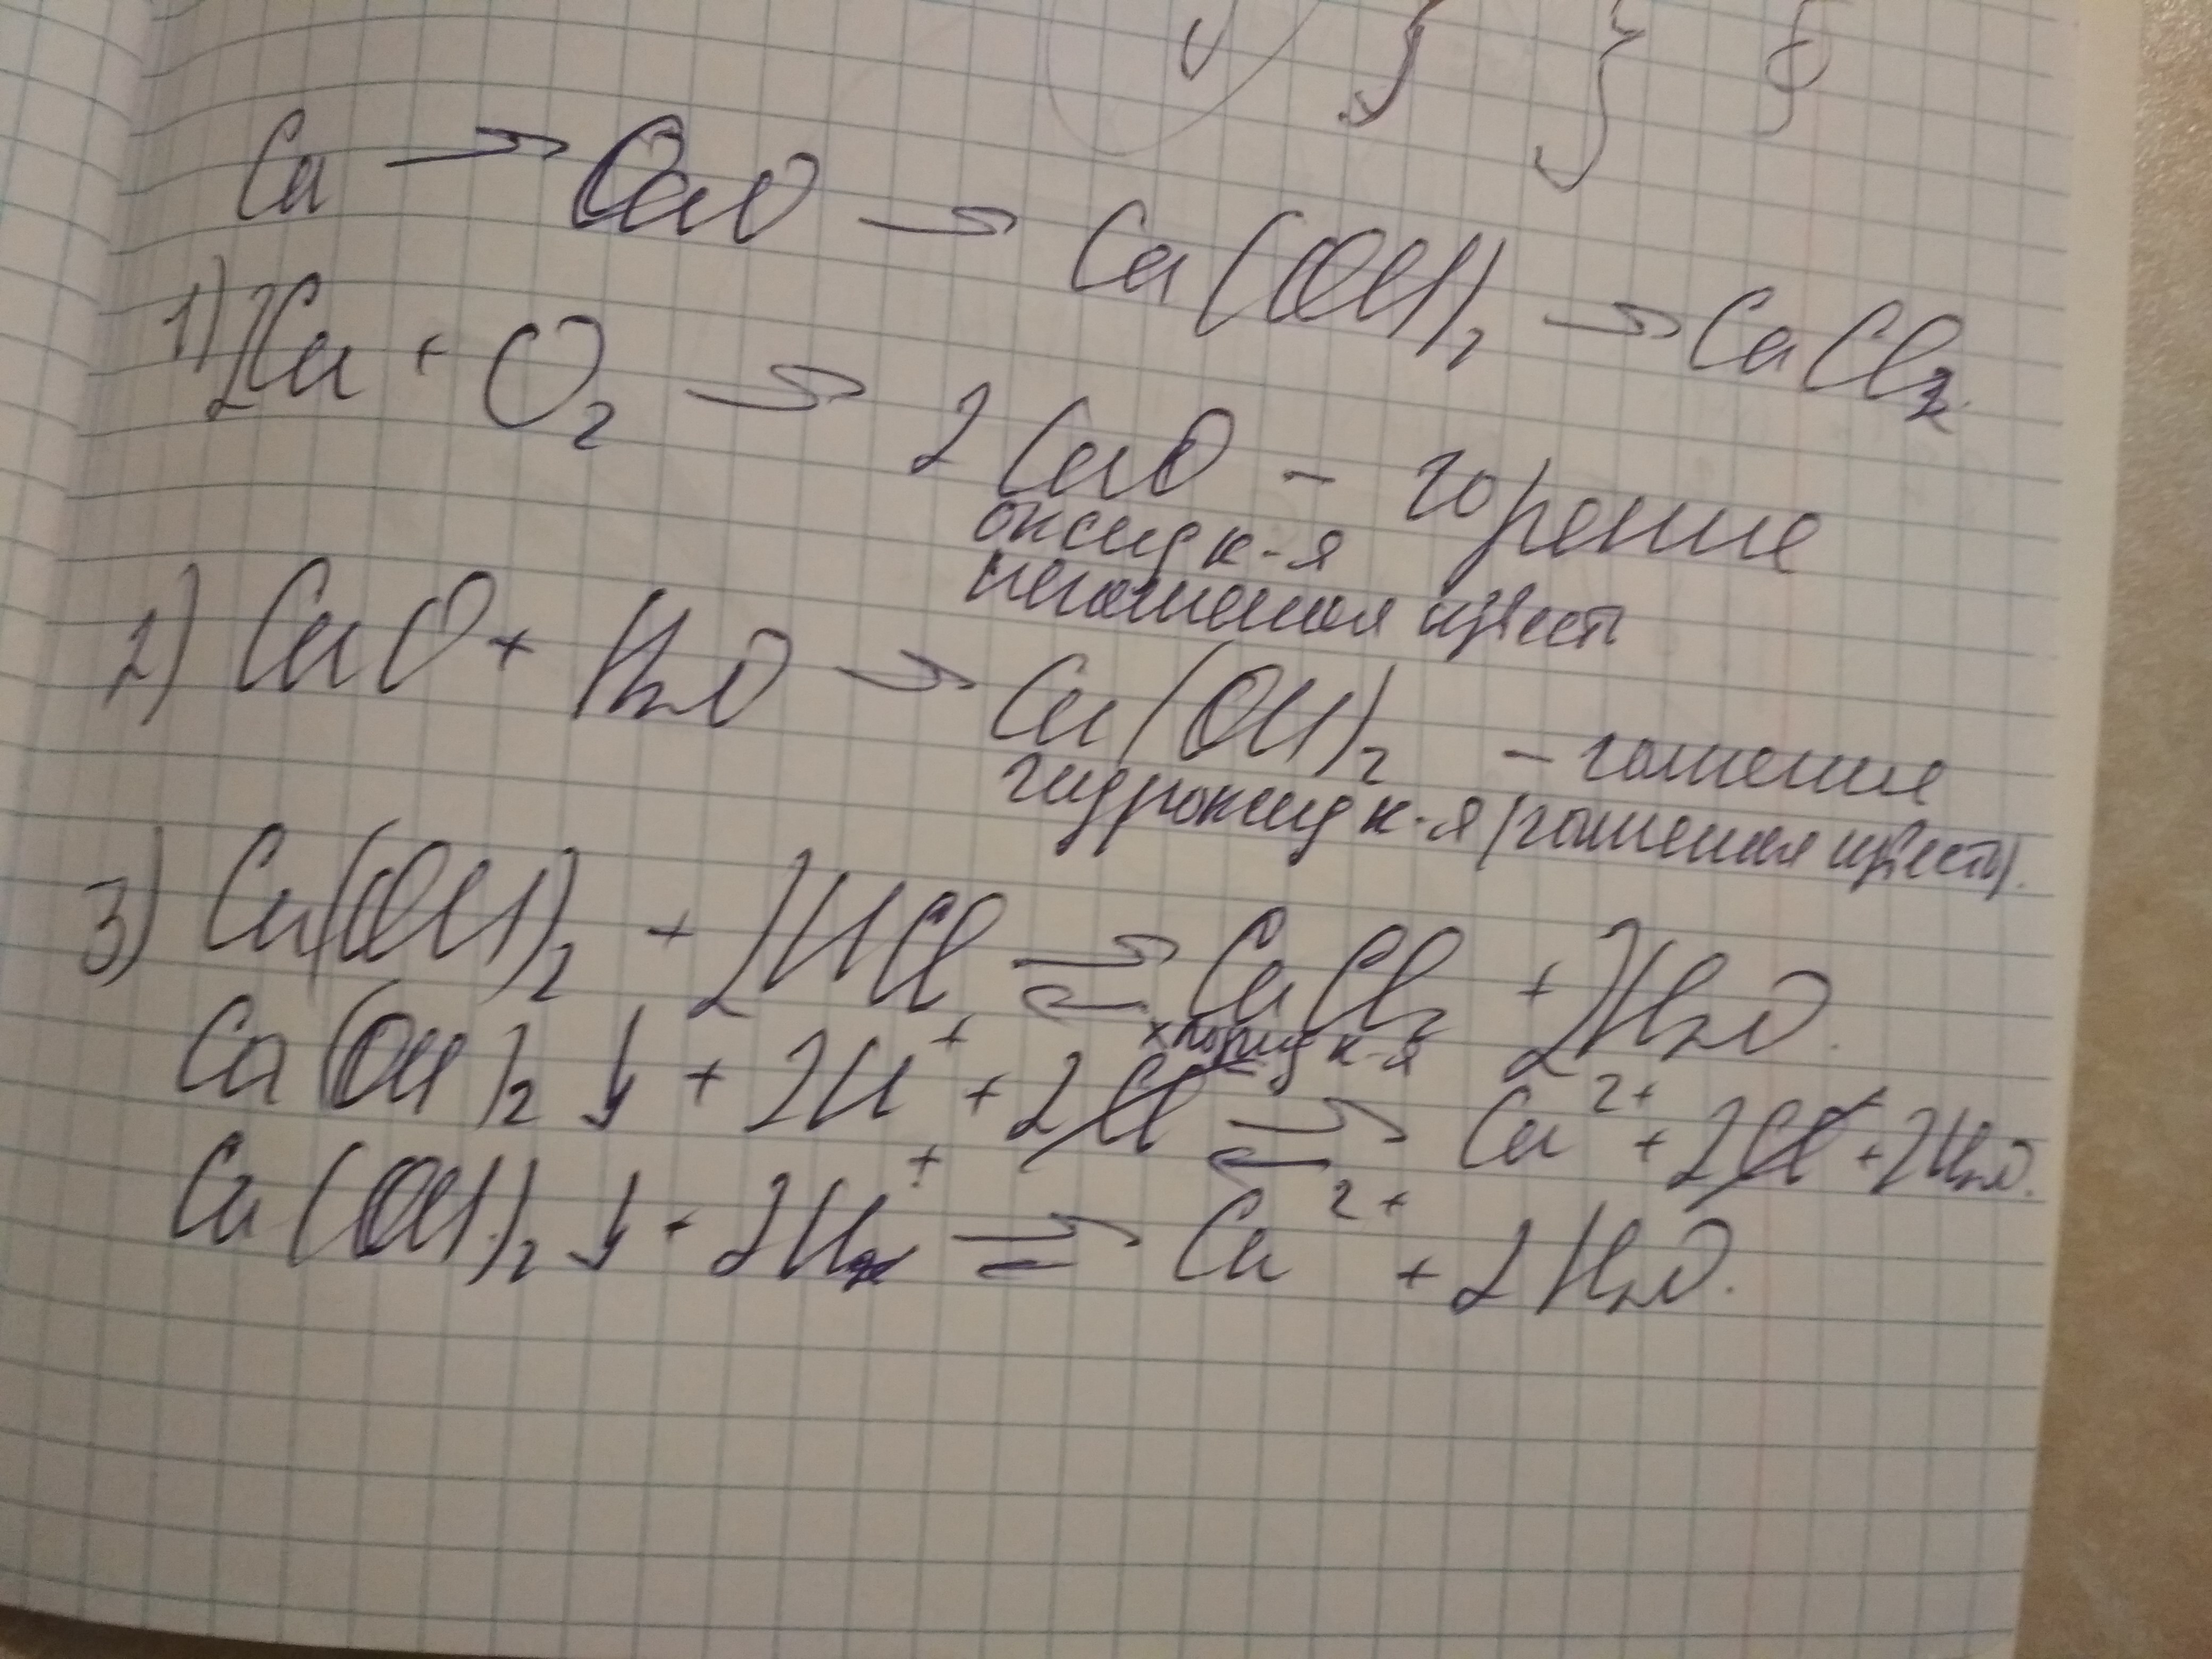 Ca → CaO → Ca(OH)₂ → CaCl₂.
1) 2Ca + O₂ → 2CaO - горение
оксид к-я
негашеная известь
2) CaO + H₂O → Ca(OH)₂ - гашение
гидроксид к-я (гашеная известь).
3) Ca(OH)₂ + 2HCl ⇌ CaCl₂ + 2H₂O.
хлорид к-я
Ca(OH)₂↓ + 2H⁺ + 2Cl⁻ ⇌ Ca²⁺ + 2Cl⁻ + 2H₂O.
Ca(OH)₂↓ + 2H⁺ ⇌ Ca²⁺ + 2H₂O.